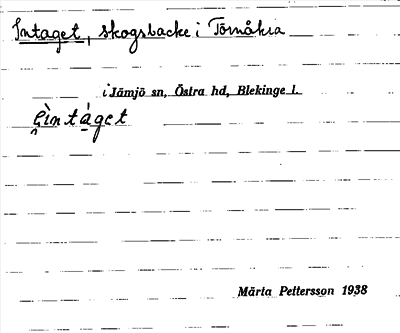 Intaget, skogsbacke i Törnåkra
i Jämjö sn, Östra hd, Blekinge l.
Märta Pettersson 1938